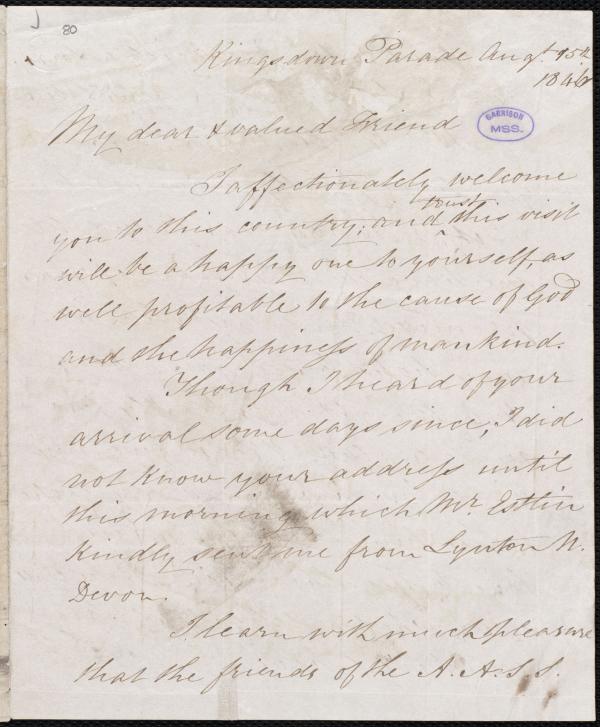 80
Kingsdown Parade Augt. 15th
1846
My dear & valued Friend
GARRISON
MSS.
I affectionately welcome
trust
you to this country, and ^ this visit
will be a happy one to yourself, as
well profitable to the cause of God
and the happiness of mankind.
Though I heard of your
arrival some days since, I did
not know your address until
this morning which Mr. Estlin
kindly sent me from Lynton N.
Devon.
I learn with much pleasure
that the friends of the A. A. S. S.